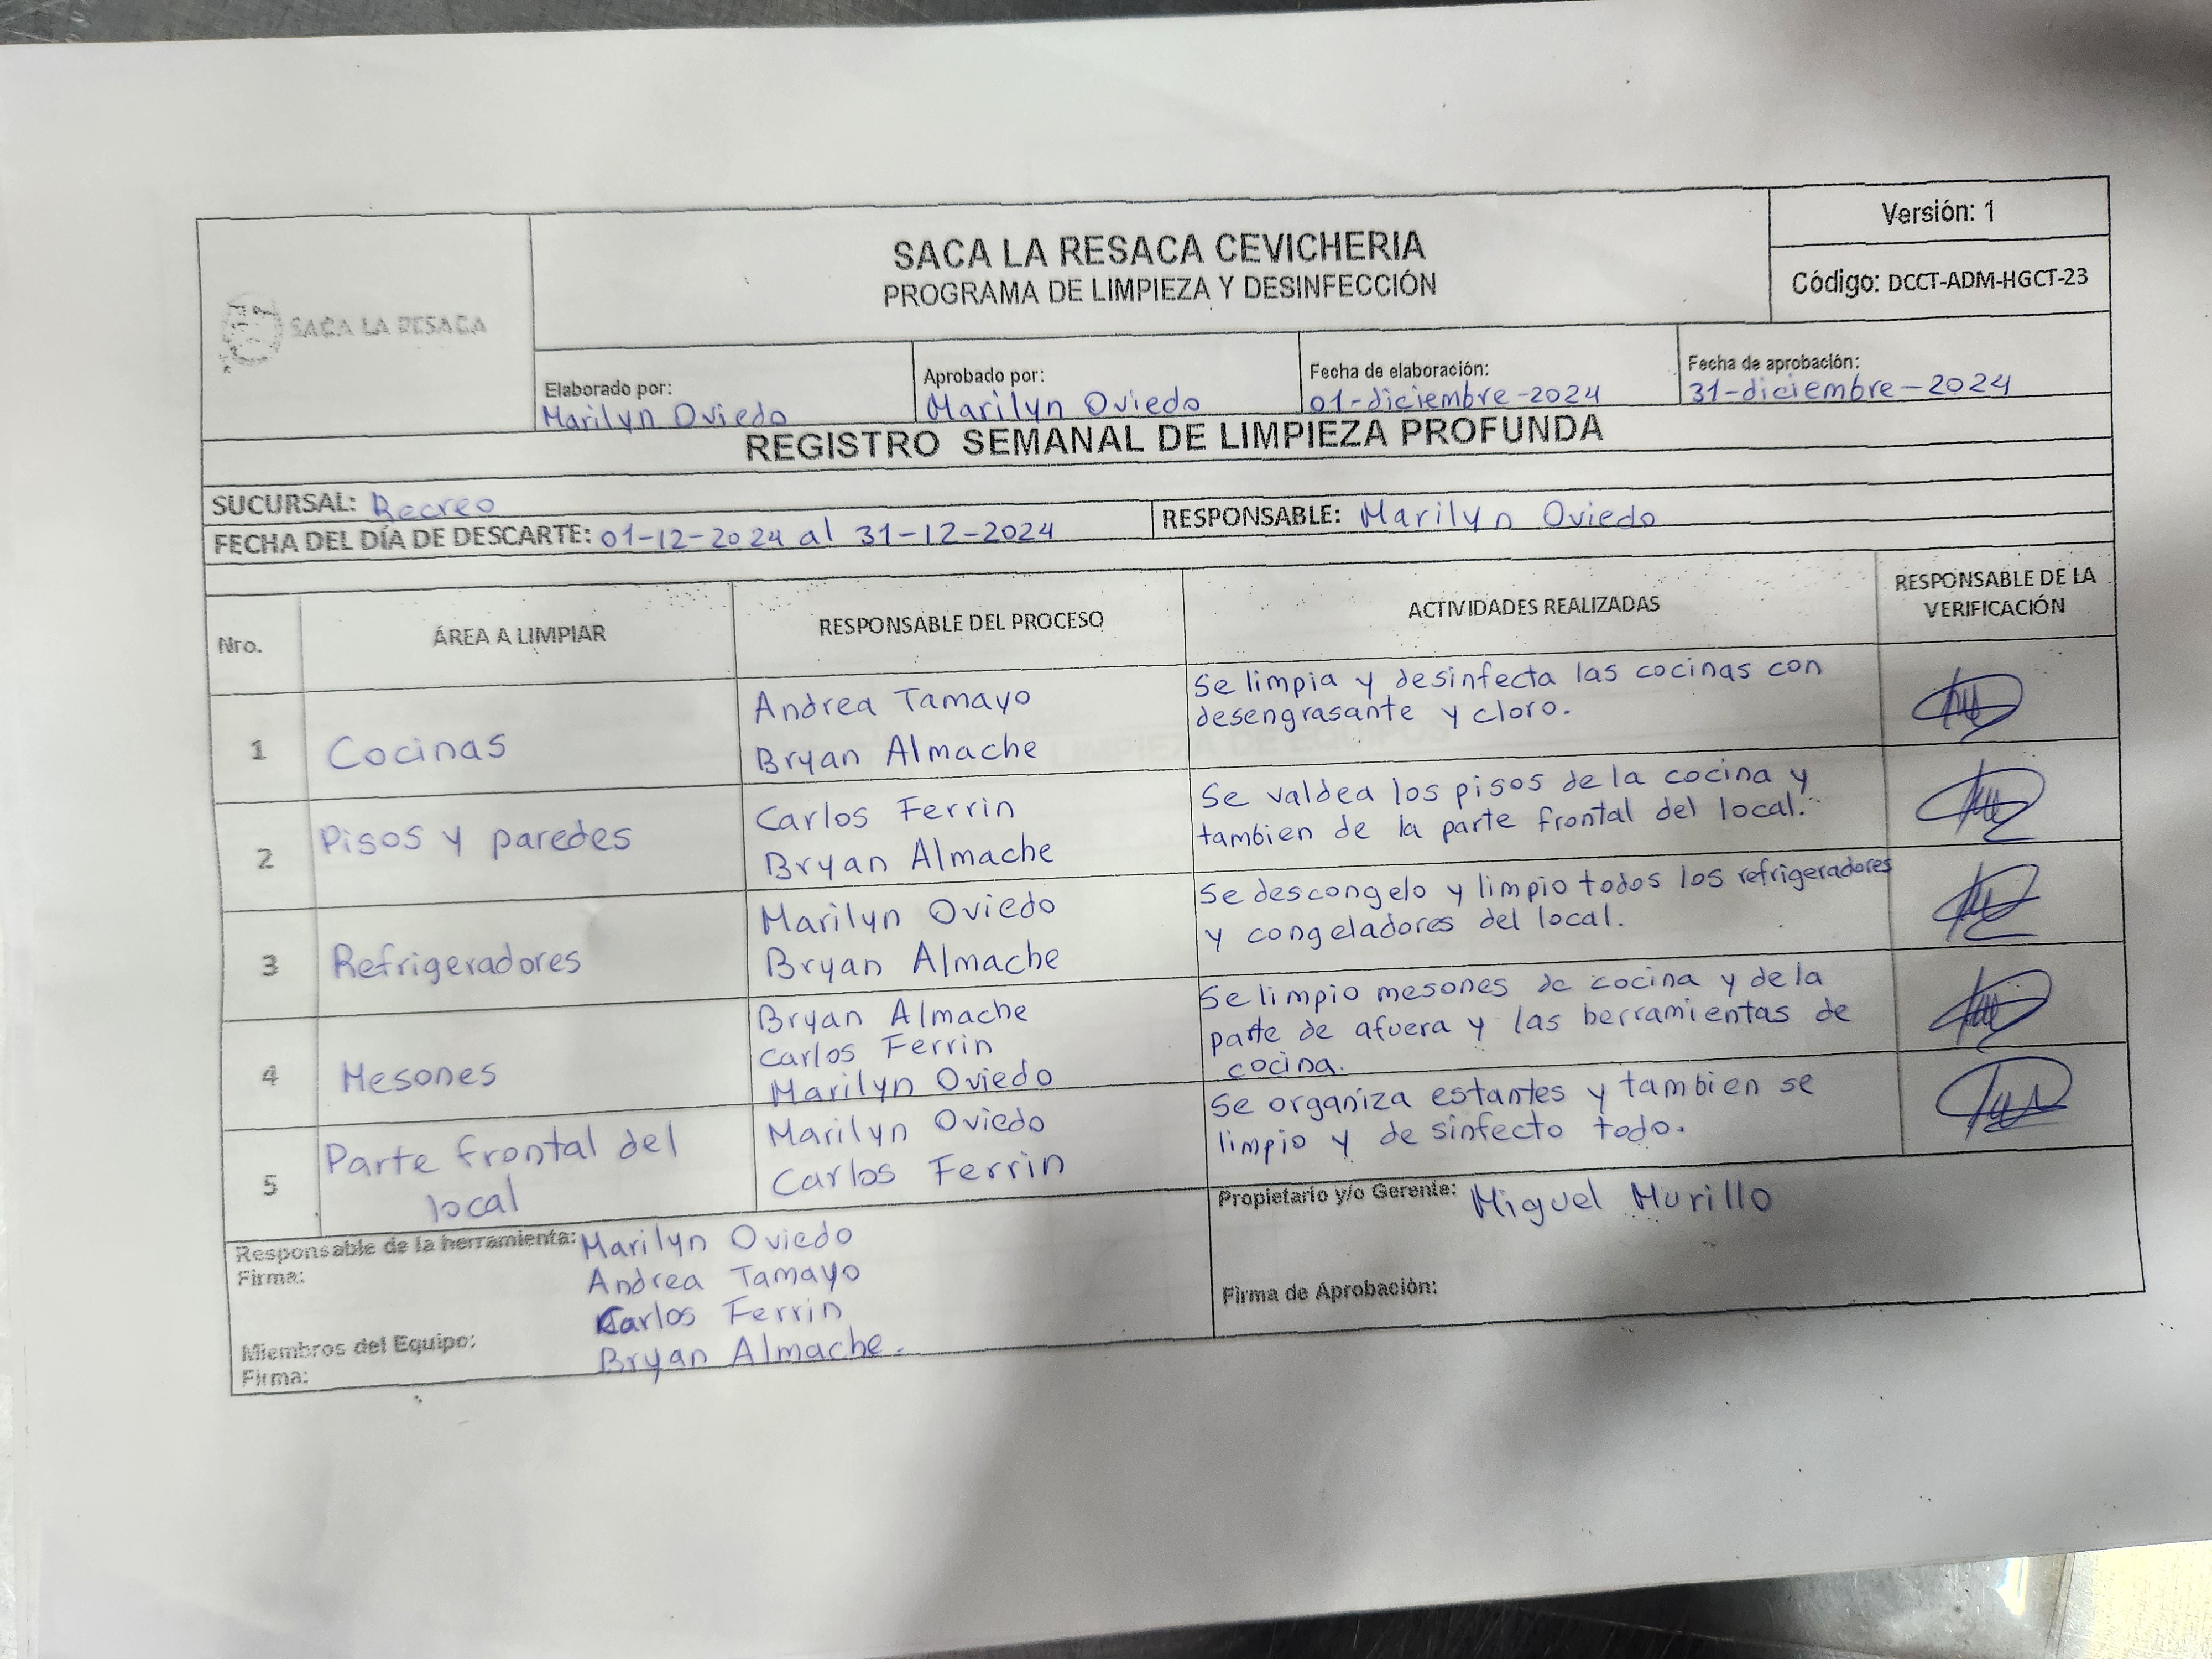 SACA LA RESACA
SACA LA RESACA CEVICHERIA
PROGRAMA DE LIMPIEZA Y DESINFECCIÓN
Versión: 1
Código: DCCT-ADM-HGCT-23
Elaborado por:
Marilyn Oviedo
Aprobado por:
Marilyn Oviedo
Fecha de elaboración:
01-diciembre-2024
Fecha de aprobación:
31-diciembre-2024
REGISTRO SEMANAL DE LIMPIEZA PROFUNDA
SUCURSAL: Recreo
FECHA DEL DÍA DE DESCARTE: 01-12-2024 al 31-12-2024
RESPONSABLE: Marilyn Oviedo
Nro.
ÁREA A LIMPIAR
RESPONSABLE DEL PROCESO
ACTIVIDADES REALIZADAS
RESPONSABLE DE LA
VERIFICACIÓN
1
Cocinas
Andrea Tamayo
Bryan Almache
Se limpia y desinfecta las cocinas con
desengrasante y cloro.
2
Pisos y paredes
Carlos Ferrin
Bryan Almache
Se valdea los pisos de la cocina y
tambien de la parte frontal del local.
3
Refrigeradores
Marilyn Oviedo
Bryan Almache
Se descongelo y limpio todos los refrigeradores
y congeladores del local.
4
Mesones
Bryan Almache
Carlos Ferrin
Marilyn Oviedo
Se limpio mesones de cocina y de la
parte de afuera y las herramientas de
cocina.
5
Parte frontal del
local
Marilyn Oviedo
Carlos Ferrin
Se organiza estantes y tambien se
limpio y de sinfecto todo.
Responsable de la herramienta: Marilyn Oviedo
Firma:
Andrea Tamayo
Carlos Ferrin
Miembros del Equipo:
Bryan Almache.
Firma:
Propietario y/o Gerente: Miguel Murillo
Firma de Aprobación: